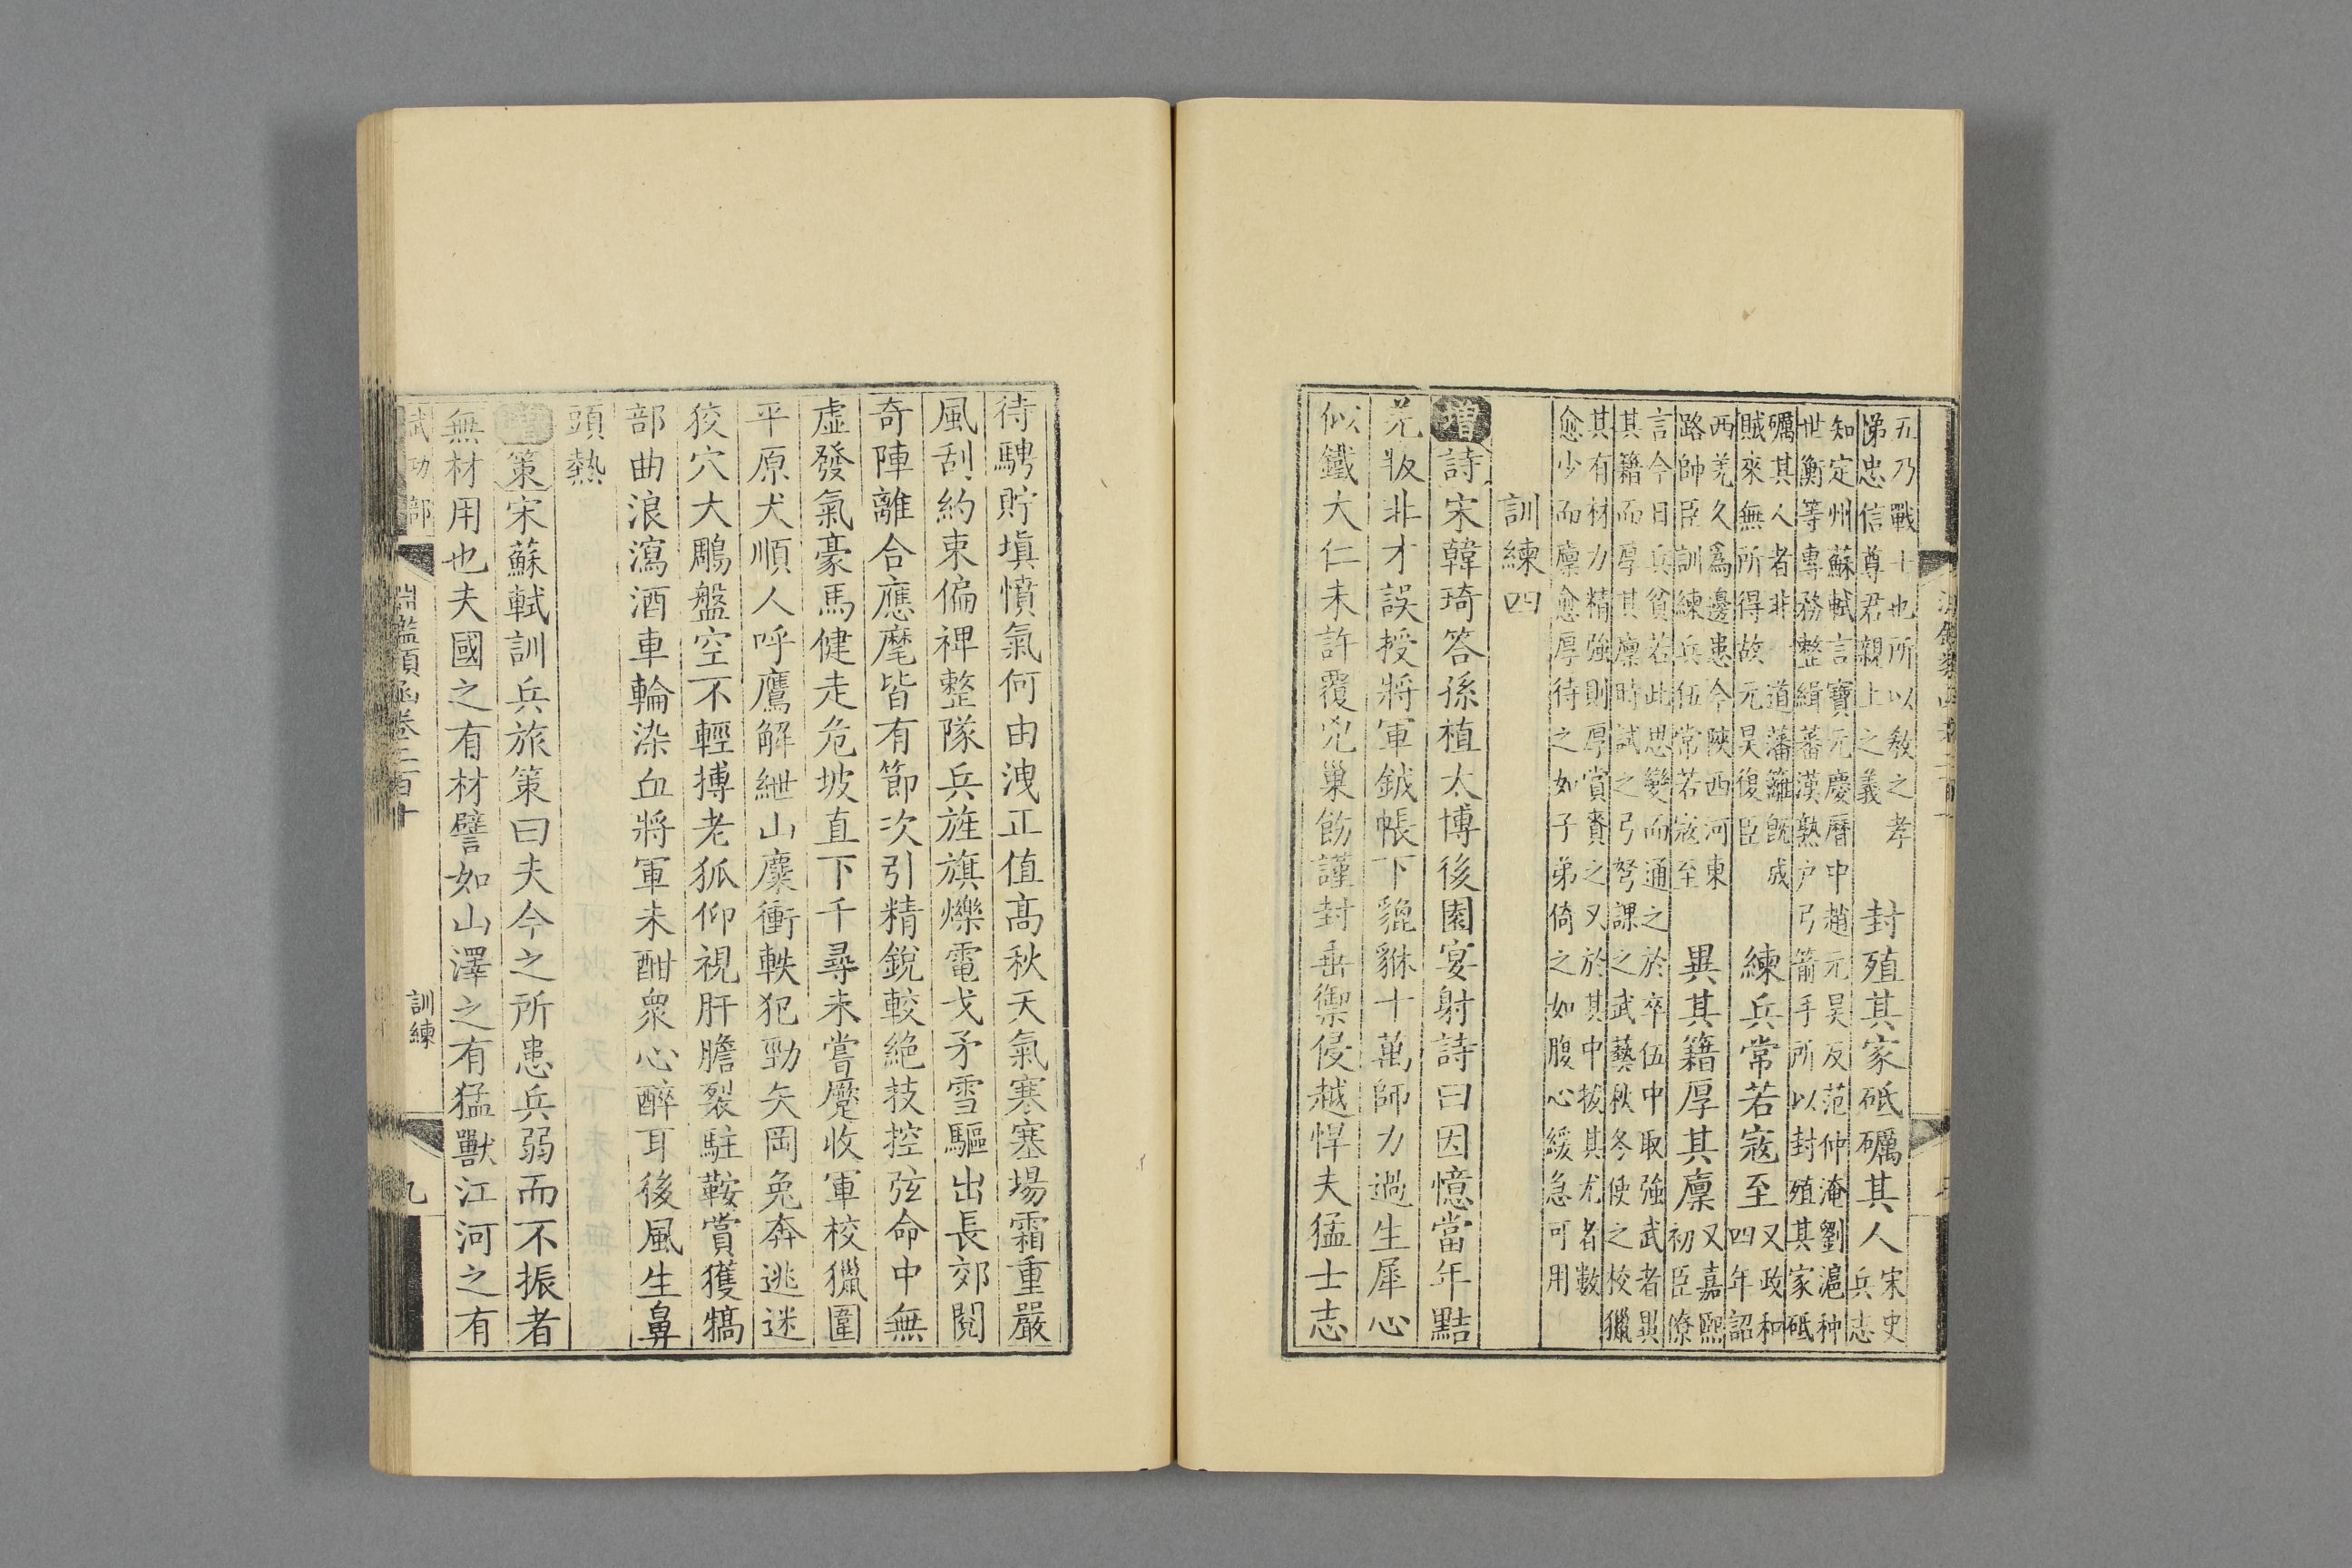 五乃戰士也所以教之孝
悌忠信尊君親上之義
封殖其家砥礪其人
宋史
兵志
知定州蘇軾言寶元慶曆中趙元昊反范仲淹劉滬种
世衡等專務整緝蕃漢熟户弓箭手所以封殖其家砥
礪其人者非道藩籬既成
賊來無所得故元昊復臣
練兵常若寇至
又政和
四年詔
西羌久為邊患今陝西河東
路帥臣訓練兵伍常若寇至
異其籍厚其廩
又嘉熙
初臣僚
言今日兵貧若此思變而通之於卒伍中取強武者異
其籍而厚其廩時試之弓弩課之武藝秋冬使之校獵
其有材力精強則厚賞賚之又於其中拔其尤者數
愈少而廩愈厚待之如子弟倚之如腹心緩急可用
訓練四
增詩宋韓琦答孫植太博後園宴射詩曰因憶當年點
羌叛非才誤授將軍鉞帳下貔貅十萬師力過生犀心
似鐵大仁未許覆兇巢飭謹封垂禦侵越悍夫猛士志
待騁貯填憤氣何由洩正值高秋天氣寒塞場霜重嚴
風刮約束偏裨整隊兵旌旗爍電戈矛雪驅出長郊閱
奇陣離合應麾皆有節次引精銳較絶技控弦命中無
虛發氣豪馬健走危坡直下千尋未嘗蹷收軍校獵圍
平原犬順人呼鷹解紲山麋衝軼犯勁矢岡兔奔逃迷
狡穴大鵰盤空不輕搏老狐仰視肝膽裂駐鞍賞獲犒
部曲浪瀉酒車輪染血將軍未酣衆心醉耳後風生鼻
頭熱
增策宋蘇軾訓兵旅策曰夫今之所患兵弱而不振者
無材用也夫國之有材譬如山澤之有猛獸江河之有
武功部
淵鑑類函卷二百十
訓練
九